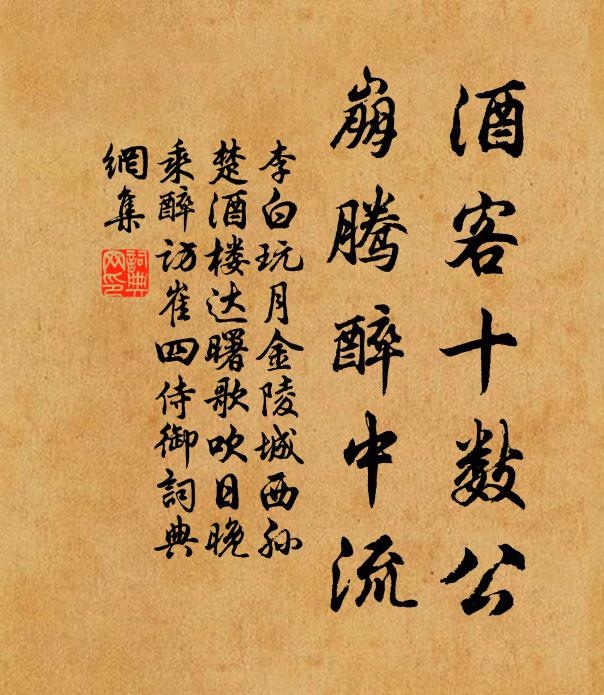 酒客十数公
崩腾醉中流
李白玩月金陵城西孙
楚酒楼达曙歌吹日晚
乘醉访崔四侍御詞典
網集
詞典
网印